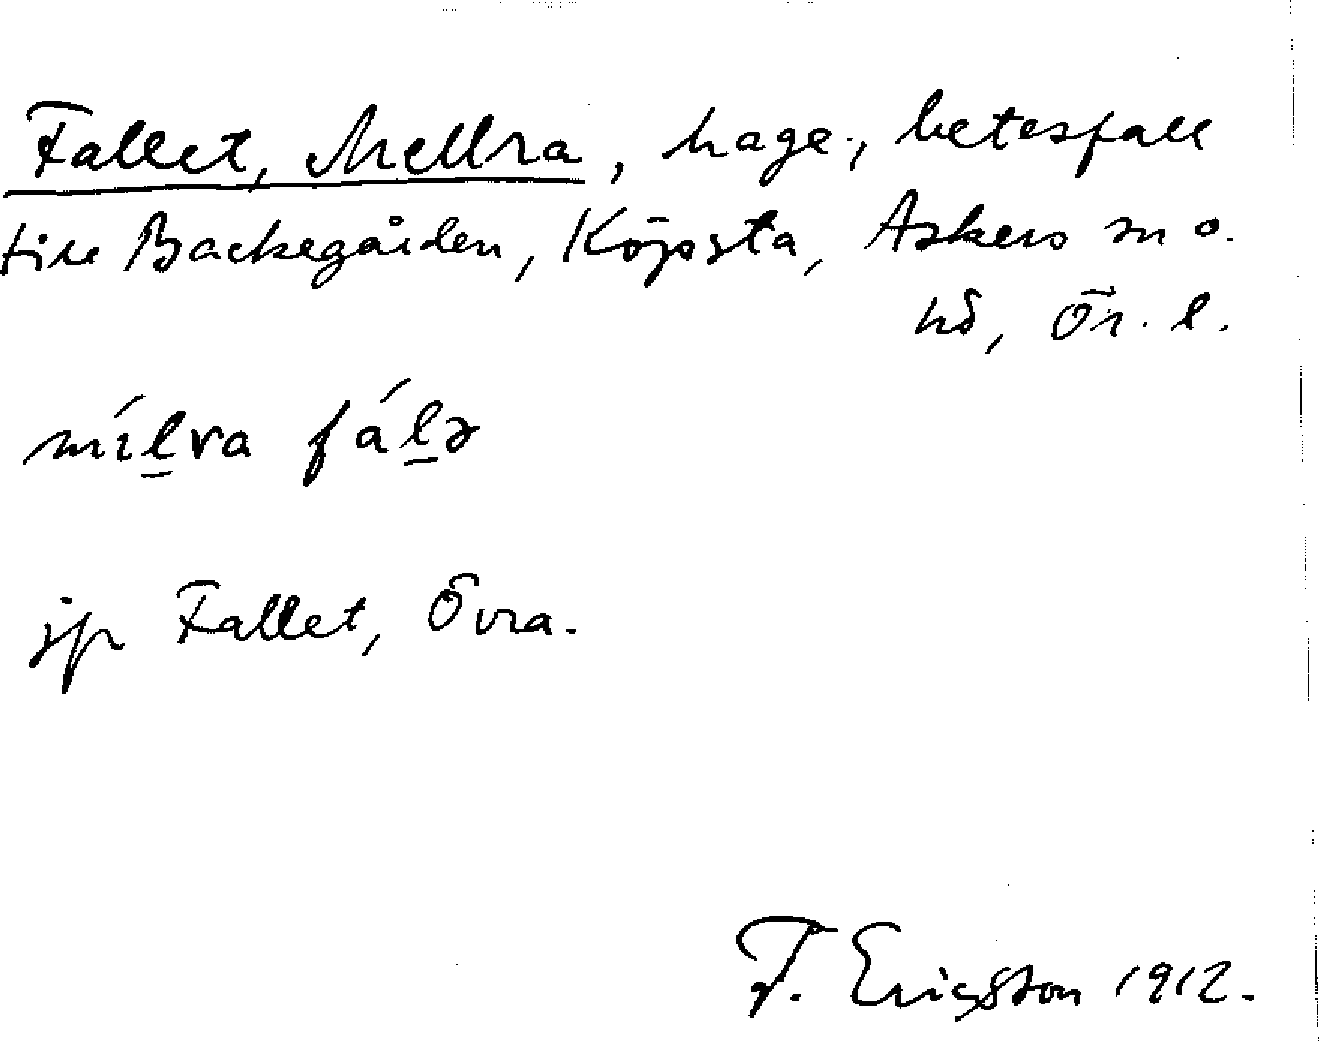 Fallet, Mellra, hage, betesfall
till Backegården, Köpsta, Askers sn o.
hd, Ör. l.
mílra fálə
jfr Fallet, Övra.
F. Ericsson 1912.